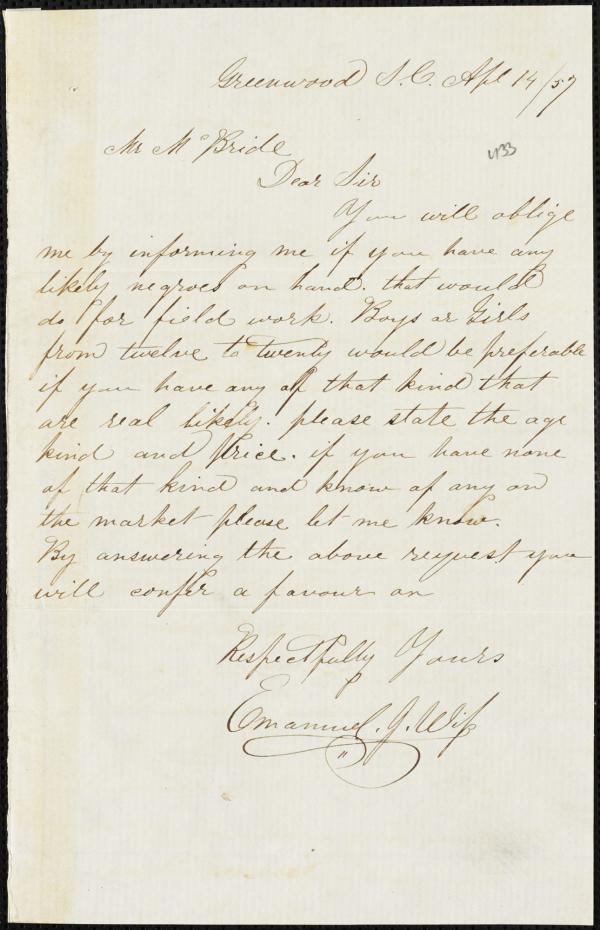 Greenwood S. C. Apl 14/57
Mr McBride
433
Dear Sir
You will oblige
me by informing me if you have any
likely negroes on hand. that would
do for field work. Boys or Girls
from twelve to twenty would be preferable
if you have any of that kind that
are real likely. please state the age
kind and Price. if you have none
of that kind and know of any on
the market please let me know.
By answering the above request you
will confer a favour on
Respectfully Yours
Emanuel. J.